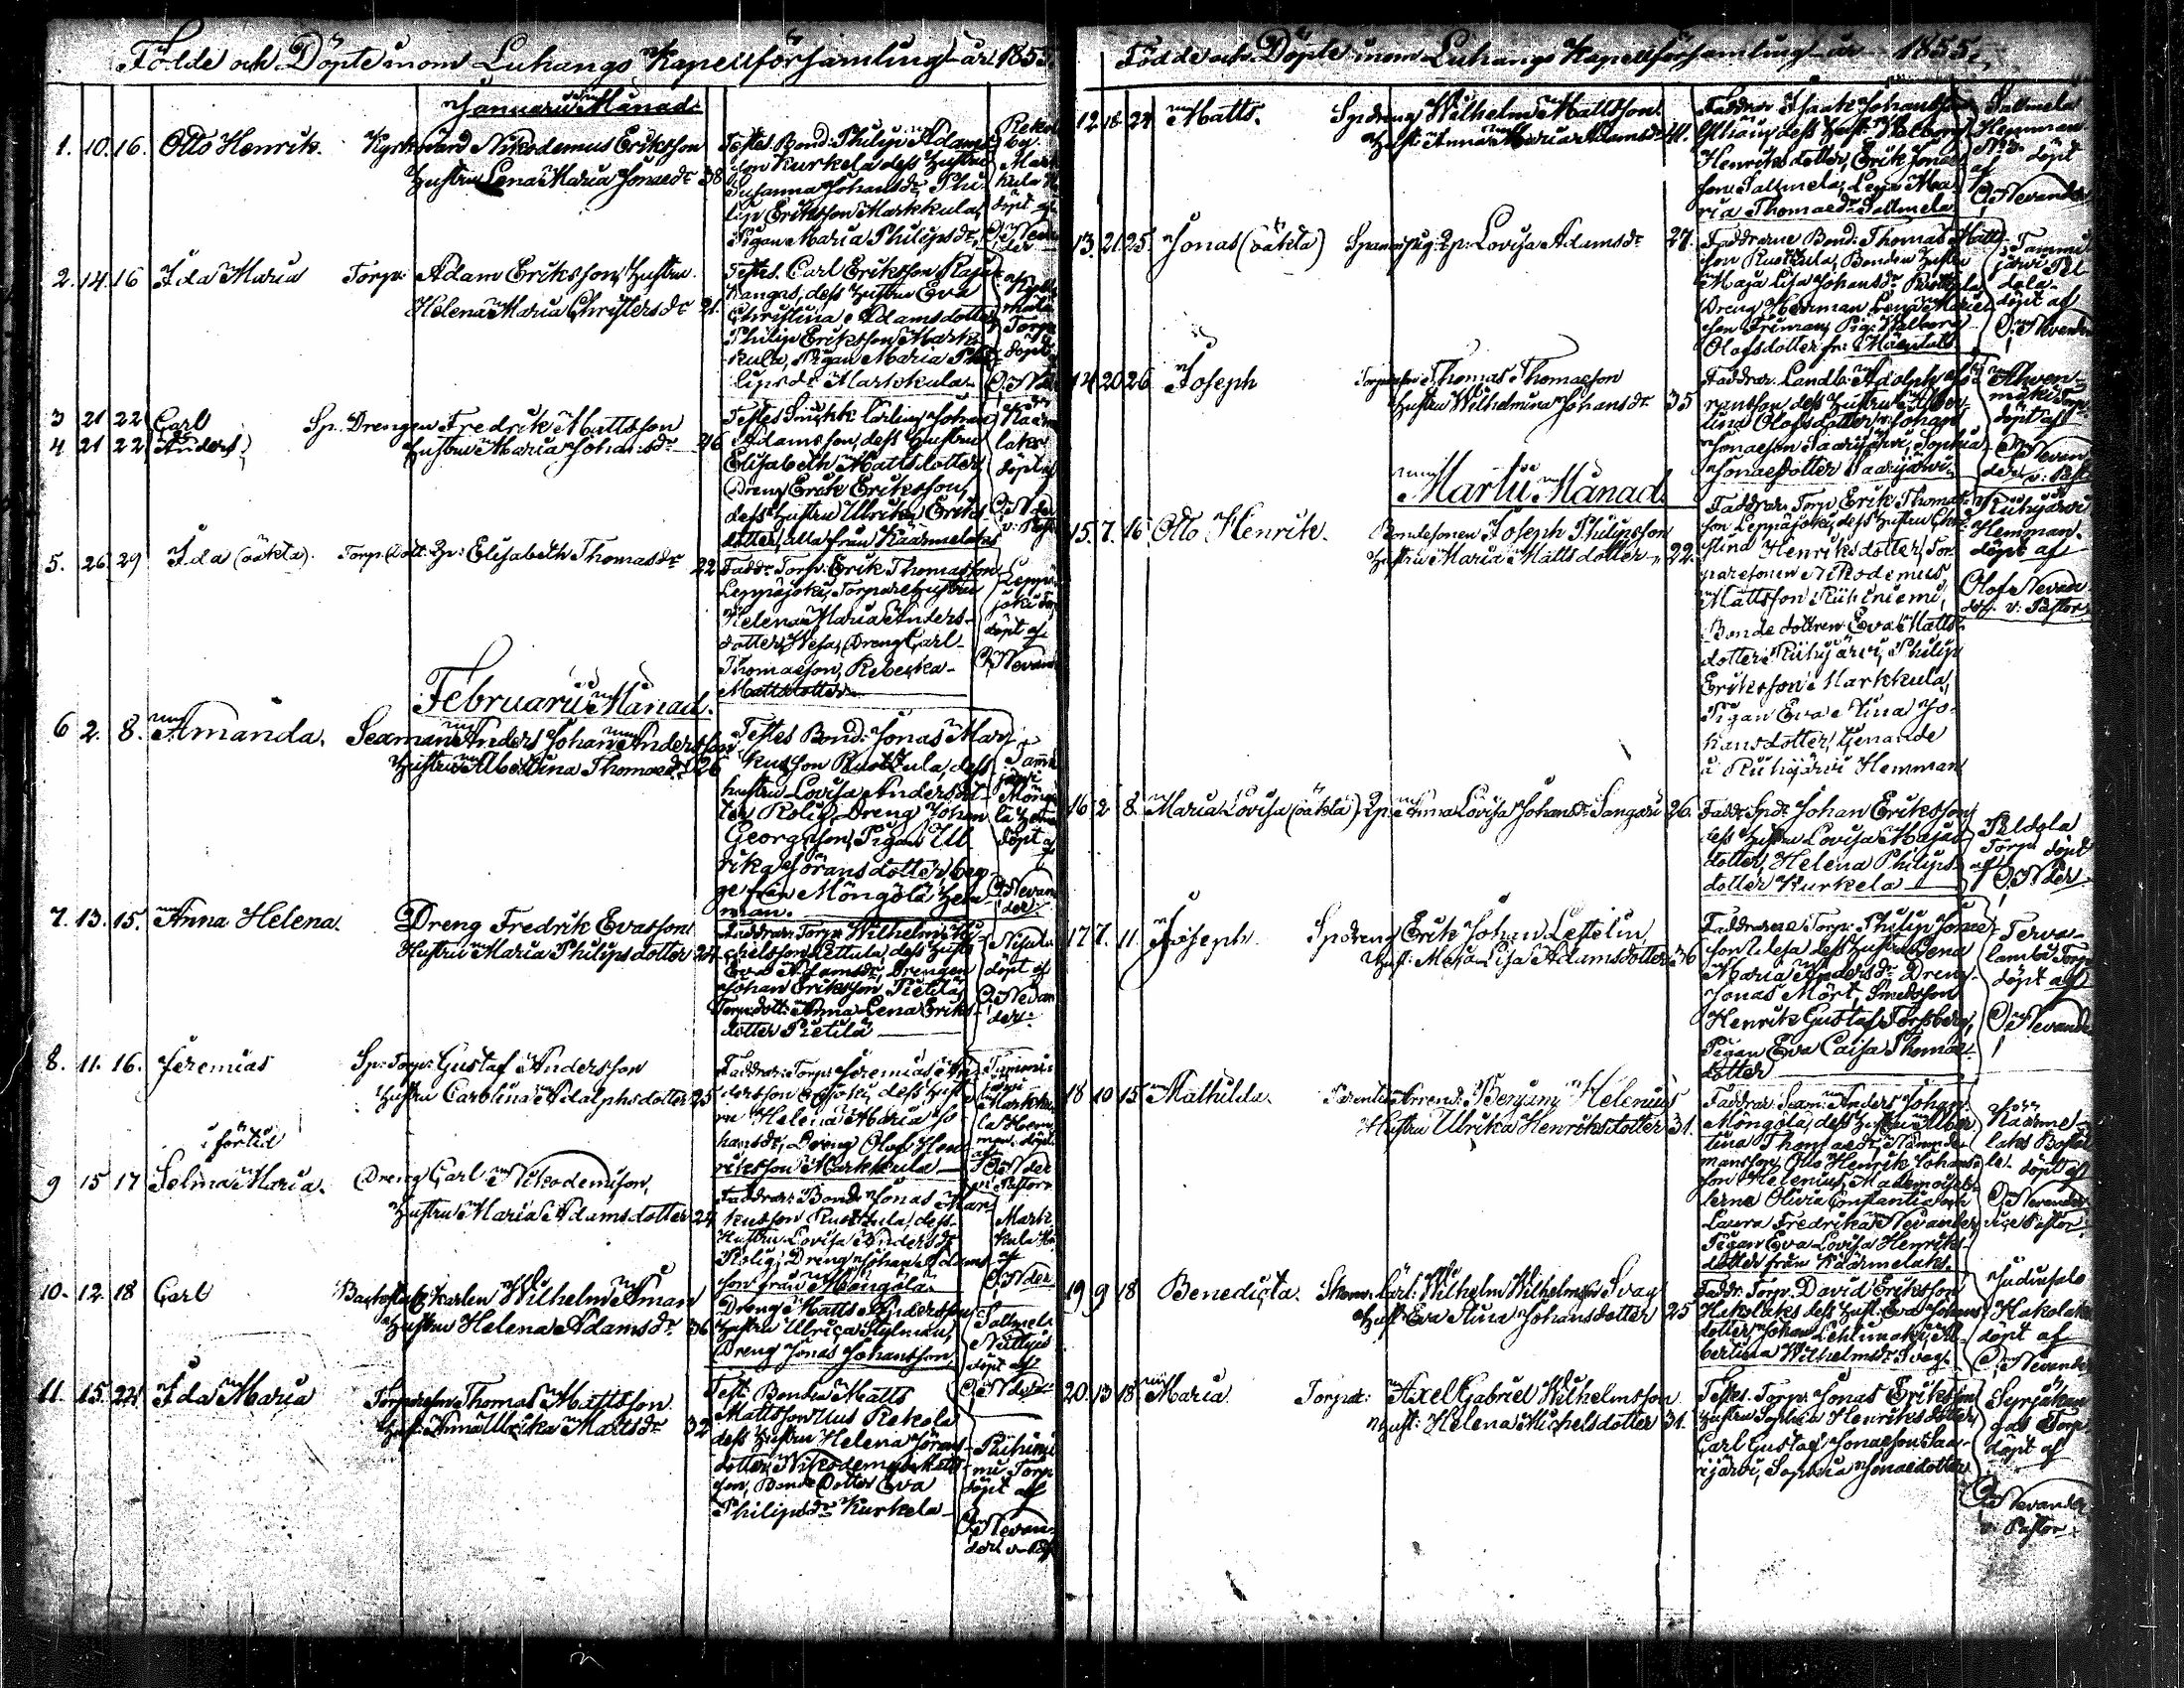 Födde och Döpte inom Luhango Kapellförsamling år 1855.
Januarii Månad.
1. 10. 16. Otto Henrik. Kyrkovärd Nikodemus Eriksson
Hustru Lena Maria Jonaedr 38
Testes Bond: Philip Adams-
son Kurkela dess Hustru
Susanna Johansdr, Phi-
lip Eriksson Markkula,
Pigan Maria Philipsdr
2. 14. 16 Ida Maria Torp: Adam Eriksson, Hustru
Helena Maria Christersdr 21.
Testes. Carl Eriksson
kangas, dess Hustru Eva
Christina Adamsdotter
Philip Eriksson Mark-
kula, Pigan Maria Phi-
lipsdr Markkula.
3 21 22 Carl
4 21 22 Anders
Sp. Drengen Fredrik Mattsson
Hustru Maria Johansdr 26
Testes Johan
Adamsson, dess Hustru
Elisabeth Mattsdotter
Dreng Erik Eriksson,
dess Hustru Ulrika Eriks-
dotter, alla från Käärmelaks
5. 26 29 Ida (oäkta). Torp. Dott. Elisabeth Thomasdr 22
Fadd: Torp: Erik Thomasson
Leppäjoki, Torpare Hustru
Helena Maria Anders-
dotter Vesa, Dreng Carl
Thomasson, Rebecka
Mattsdotter
Leppä-
joki Torp
döpt af
O. Nevan
Februarii Månad.
6 2. 8. Amanda. Seaman Anders Johan Andersson
Hustru Albertina Thomaedr 26
Testes Bond: Jonas Mar-
kusson Ruokkula, dess
hustru Lovisa Andersdot-
ter Rolig, Dreng Johan
Georgsson, Pigan Ul-
rika Göransdotter, beg-
ge från Möngölä Hem-
man.
7. 13. 15. Anna Helena. Dreng Fredrik Evasson
Hustru Maria Philipsdotter 24
Faddrar: Torp: Wilhelm Mi-
chelsson Lettula, dess Hustr
Eva Adamsdr, Drengen
Johan Eriksson Pietilä,
Torp: dott: Anna Lena Eriks-
dotter Pietilä
döpt af
O. Nevan
der.
8. 11. 16. Jeremias Sp: Torp: Gustaf Andersson
Hustru Carolina Adolphsdotter 25
Faddrar: Torp: Jeremias An-
dersson dess Hust-
ru Helena Maria Jo-
hansdr, Dreng Olof Hen-
riksson Markkula
i förtid
9 15 17 Selma Maria. Dreng Carl Nikodemison,
Hustru Maria Adamsdotter 24
Faddrar: Bond: Jonas Mar-
kusson Ruokkula, dess
Hustru Lovisa Andersdr
Rolig, Dreng Johan Adams-
son från Möngölä.
10. 12. 18 Carl Wilhelm Åman
Hustru Helena Adamsdr 36
Dreng Matts Andersson
Hustru Ulrica Stylman,
Dreng Jonas Johansson
11. 15. 24 Ida Maria Torparesn Thomas Mattsson
Hust: Anna Ulrika Mattsdr 32
Test: Bonden Matts
Mattsson Uus Rekola
dess Hustru Helena Görans-
dotter, Nikodemus Matts-
son, Bonde Dotter Eva
Philipsdr Kurkela
Riihinie-
mi Torp
döpt af
O. Nevan-
der v. Past
Födde och Döpte inom Luhango Kapellförsamling år 1855.
12. 18. 24 Matts. Sp dreng Wilhelm Mattsson.
Hust: Anna Maria Adamsdr 41.
Faddrar Isaak Johansson
dess Hust: Walborg
Henriksdotter, Erik Jonae-
son Sallmela, Lena Ma-
ria Thomaedr Sallmela
Sallmela
Hemman
No 3. döpt
af
O. Nevander
13. 21. 25. Jonas (oäkta) Lovisa Adamsdr 27.
Faddrarne Bond: Thomas Matts-
son Ruokkula, Bonden Hustru
Maja Lisa Johansdr Ruokkula
Dreng Herman
Friman, Pig: Walborg
Olofsdotter
Tammi-
järvi Pel-
dola
döpt af
O. Nevander
14 20 26 Joseph Torparesn Thomas Thomasson
Hustru Wilhelmina Johansdr 35
Faddrar. Landb: Adolph Jö-
ransson, dess Hustru Alber-
tina Olofsdotter, Johan
Jonaesson Saarijärvi, Sophia
Jonaedotter Saarijärvi.
Ahven-
mäki Torp
döpt af
O. Nevan-
der v. Past
Martii Månad.
15. 7. 16 Otto Henrik. Bondesonen Joseph Philipsson
Hustru Maria Mattsdotter 22.
Faddrar. Torp Erik Thomas-
son Leppäjoki, dess Hustru Chri-
stina Henriksdotter, Tor-
paresonen Nikodemus
Mattsson Riihiniemi,
Bondedottren Eva Matts-
dotter Riihijärvi, Philip
Eriksson Markkula,
Pigan Eva Stina Jo-
hansdotter, tjenande
å Riihijärvi Hemman
Riihijärvi
Hemman.
döpt af
Olof Nevan-
der. v. Pastor.
16 2 8. Maria Lovisa (oäkta) Anna Lovisa Johansdr Sangari 26.
Fadd: Johan Eriksson
dess Hustru Lovisa
dotter, Helena Philips-
dotter Kurkela
Peldola
Torp döpt
af O. Nder
17 7. 11. Joseph. Sp dreng Erik Johan Lettelin,
Hust: Maja Lisa Adamsdotter 36
Faddrarne Torp: Philip Jonae-
son Vesa dess Hustru Lena
Maria Andersdr, Dreng
Jonas Mört, Smedsson
Henrik Gustaf Forssberg,
Pigan Eva Caisa Thomae-
dotter
Terva-
lamba Torp
döpt af
O. Nevander
18 10 15 Mathilda. Arrend: Benjami Helenius
Hustru Ulrika Henriksdotter 31.
Faddrar: Seam: Anders Johan
Möngölä, dess Hustru Alber-
tina Thomaedr, Nämnde-
mansson Otto Henrik Johans-
son Helenius, Mademoisel-
lerne Olivia Constantia och
Laura Fredrika Nevander,
Pigan Eva Lovisa Henriks-
dotter från Käärmelaks.
Käärme-
laks Bostäl-
le. döpt af
O. Nevander
vice Pastor.
19 9 18 Benedicta. Wilhelm Wilhelmsson Svag
Hust: Eva Stina Johansdotter 25
Fadd: Torp. David Eriksson
Hakolaks dess Hust: Eva Johans-
dotter, Johan Lehtimäki, Al-
bertina Wilhelmsdr Svag.
Judinsalo
Hakolaks
döpt af
O. Nevander
20. 13 18 Maria. Torpar: Axel Gabriel Wilhelmsson
Hust: Helena Michelsdotter 31.
Testes. Torp: Jonas Eriksson
Hustru Sophia Henriksdotter,
Carl Gustaf Jonaeson Saa-
rijärvi, Sophia Jonaedotter
Syrjäkan-
gas Torp
döpt af
O. Nevander
v. Pastor.